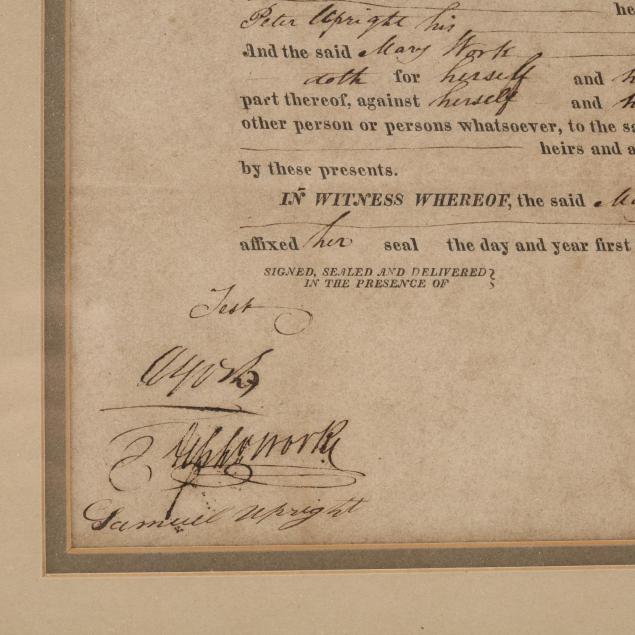 he
Peter Upright his
And the said Mary Work
doth for herself and h
part thereof, against herself and h
other person or persons whatsoever, to the sa
heirs and a
by these presents.
IN WITNESS WHEREOF, the said Ma
affixed her seal the day and year first
SIGNED, SEALED AND DELIVERED
IN THE PRESENCE OF
Test
Work
Samuel Upright